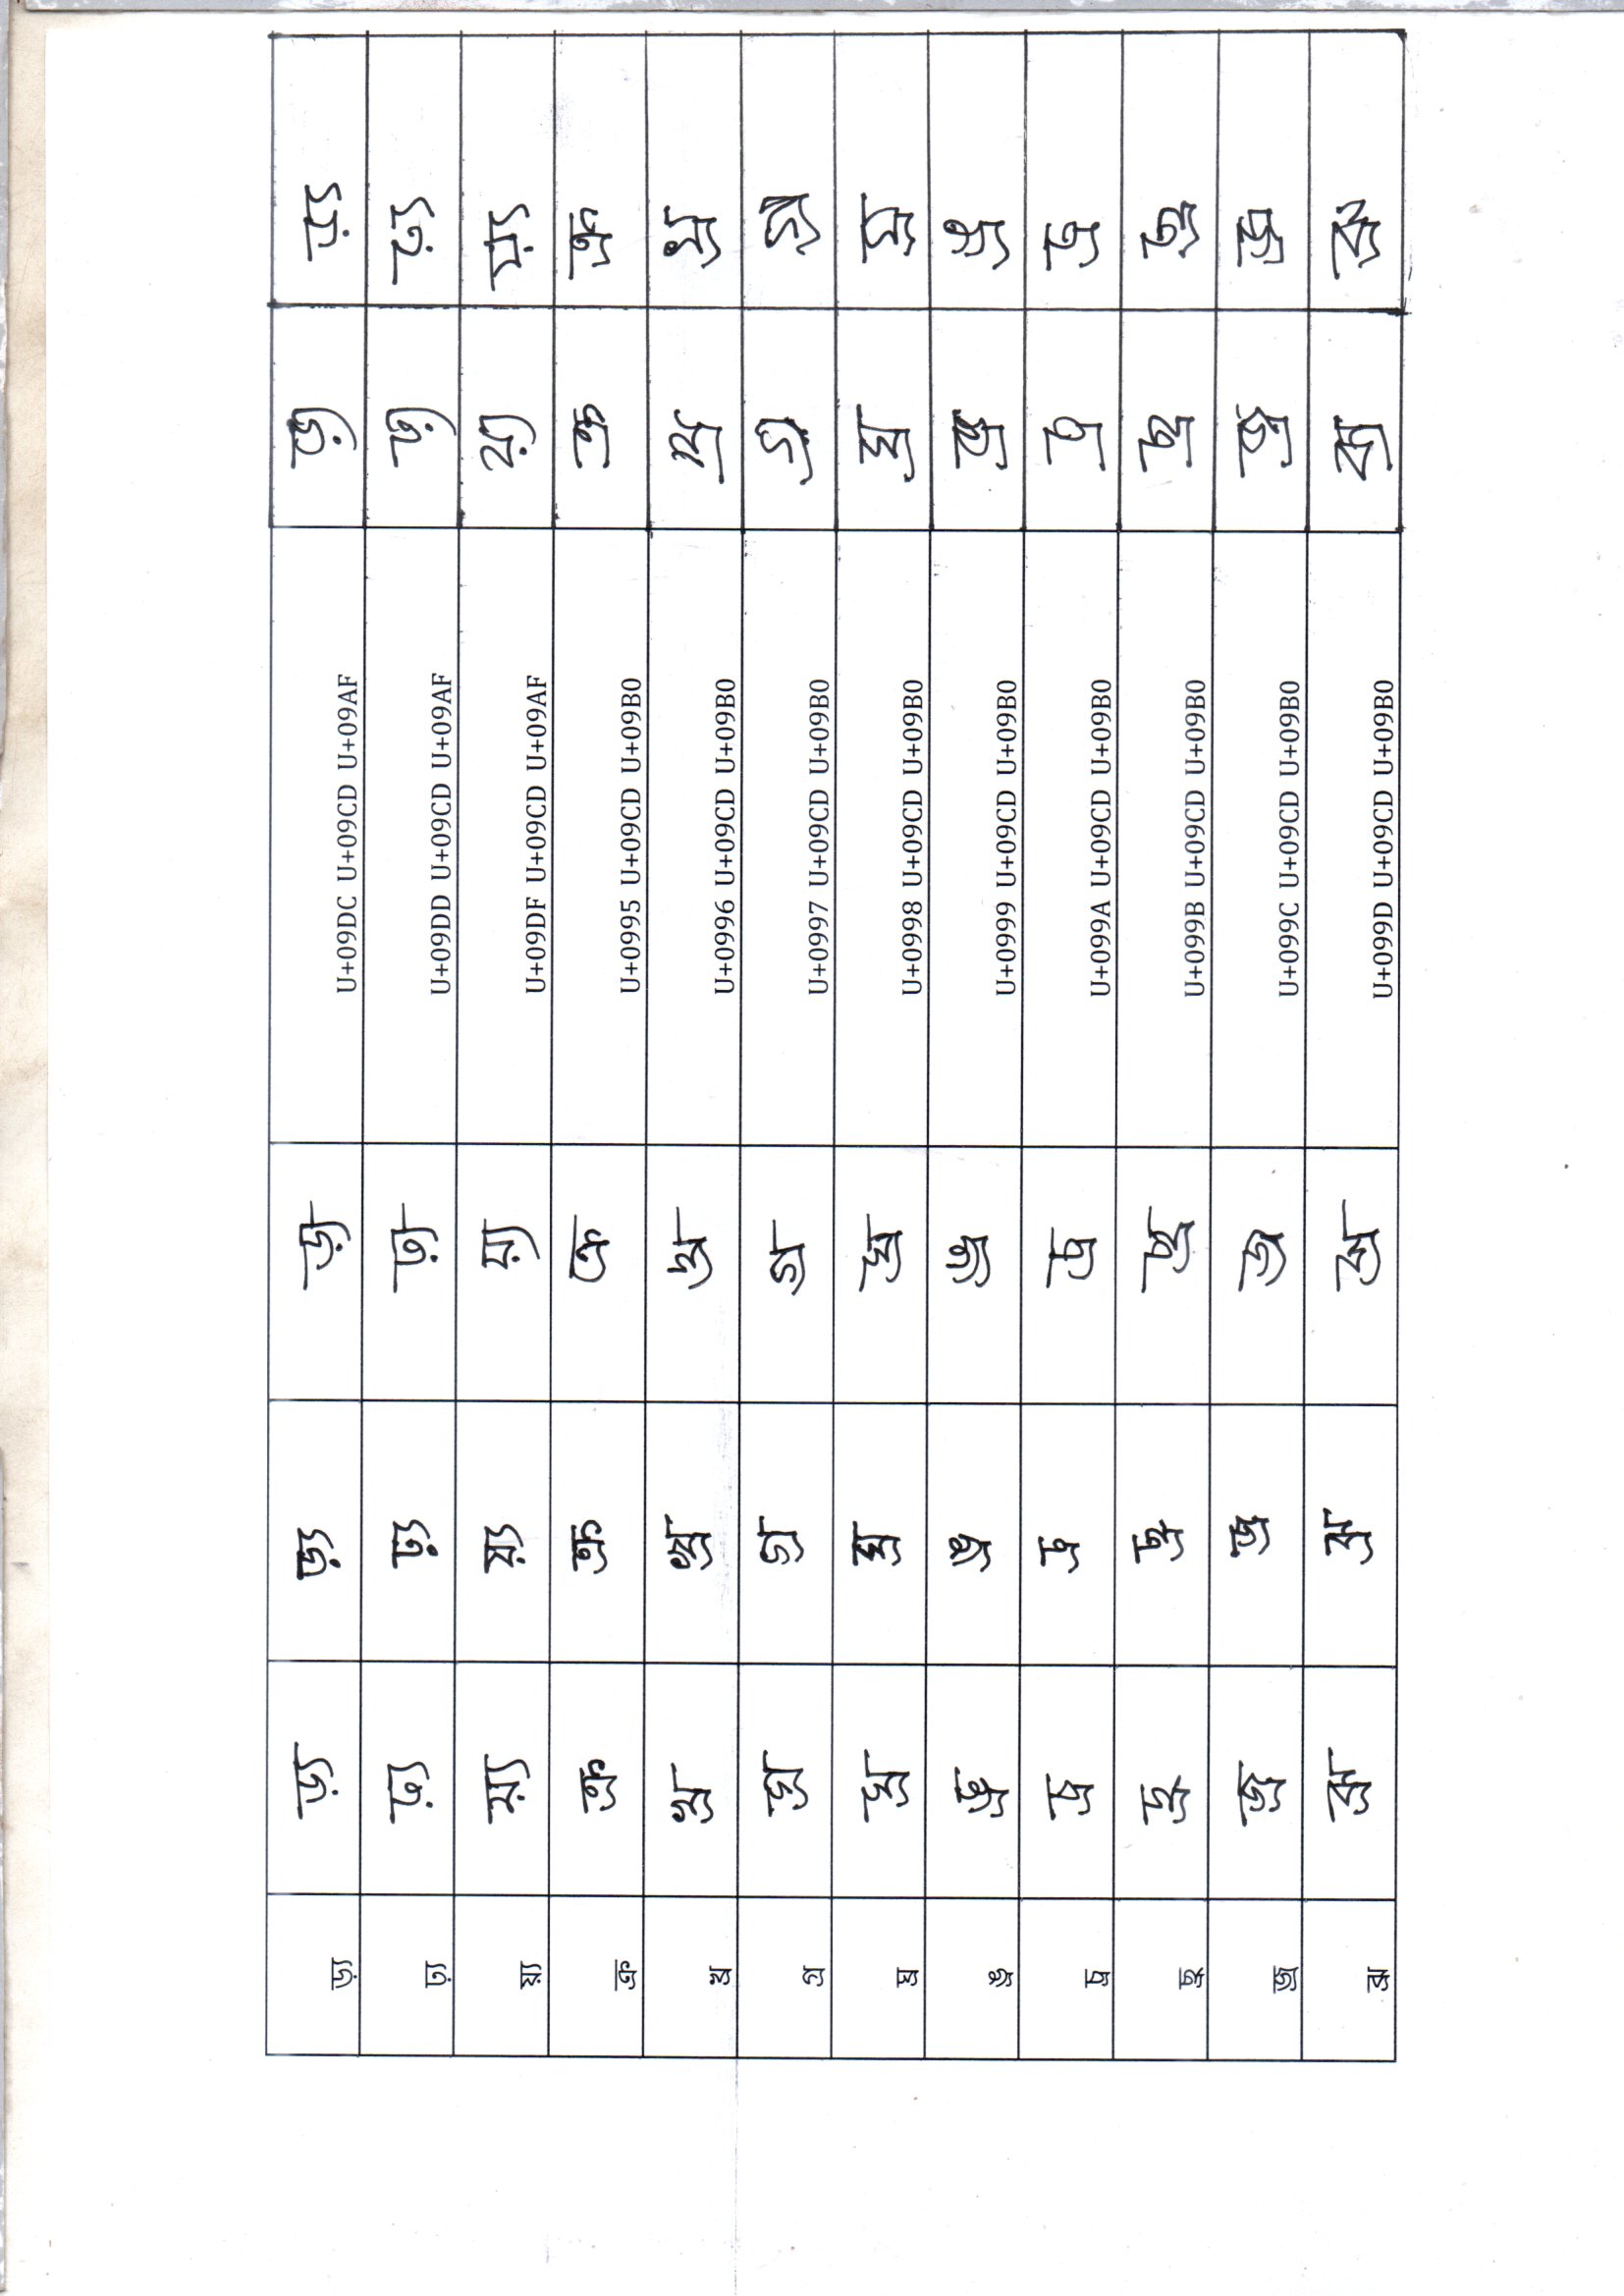 ড়্য ড়্য ড়্য ড়্য U+09DC U+09CD U+09AF ড়্য ড়্য
ঢ়্য ঢ়্য ঢ়্য ঢ়্য U+09DD U+09CD U+09AF ঢ়্য ঢ়্য
য়্য য়্য য়্য য়্য U+09DF U+09CD U+09AF য়্য য়্য
ক্র ক্র ক্র ক্র U+0995 U+09CD U+09B0 ক্র ক্র
খ্র খ্র খ্র খ্র U+0996 U+09CD U+09B0 খ্র খ্র
গ্র গ্র গ্র গ্র U+0997 U+09CD U+09B0 গ্র গ্র
ঘ্র ঘ্র ঘ্র ঘ্র U+0998 U+09CD U+09B0 ঘ্র ঘ্র
ঙ্র ঙ্র ঙ্র ঙ্র U+0999 U+09CD U+09B0 ঙ্র ঙ্র
চ্র চ্র চ্র চ্র U+099A U+09CD U+09B0 চ্র চ্র
ছ্র ছ্র ছ্র ছ্র U+099B U+09CD U+09B0 ছ্র ছ্র
জ্র জ্র জ্র জ্র U+099C U+09CD U+09B0 জ্র জ্র
ঝ্র ঝ্র ঝ্র ঝ্র U+099D U+09CD U+09B0 ঝ্র ঝ্র